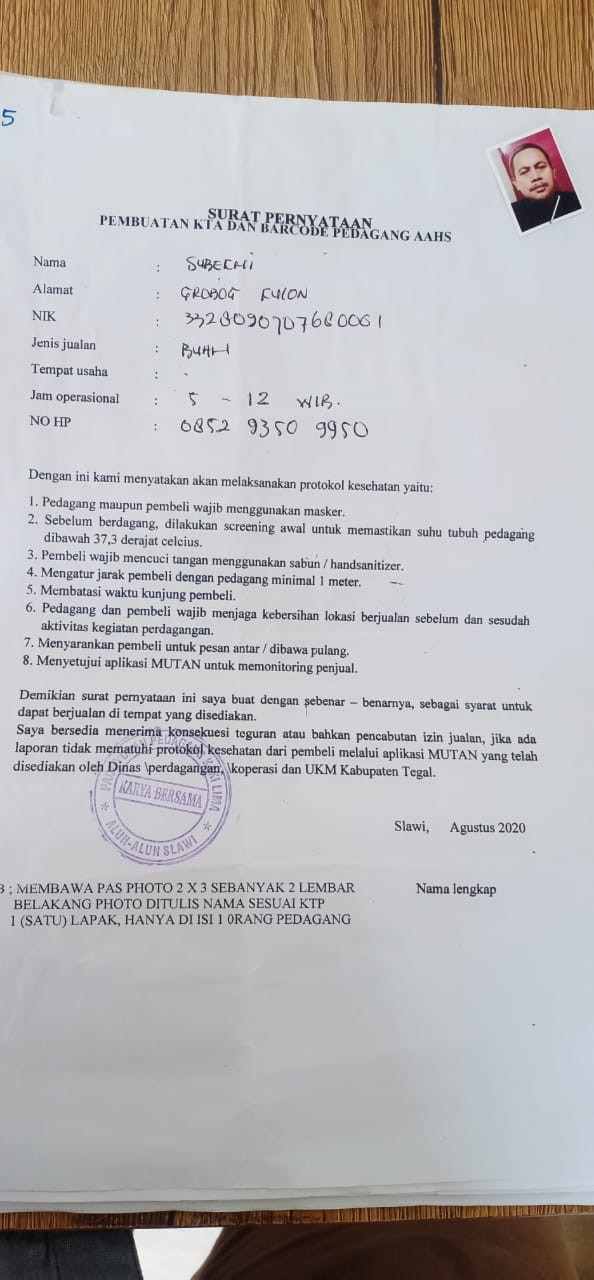 5
SURAT PERNYATAAN
PEMBUATAN KTA DAN BARCODE PEDAGANG AAHS
Nama : SUBECHI
Alamat : GROBOG KULON
NIK : 3328090707680061
Jenis jualan : BUAH
Tempat usaha : -
Jam operasional : 5 - 12 WIB.
NO HP : 0852 9350 9950
Dengan ini kami menyatakan akan melaksanakan protokol kesehatan yaitu:
1. Pedagang maupun pembeli wajib menggunakan masker.
2. Sebelum berdagang, dilakukan screening awal untuk memastikan suhu tubuh pedagang
dibawah 37,3 derajat celcius.
3. Pembeli wajib mencuci tangan menggunakan sabun / handsanitizer.
4. Mengatur jarak pembeli dengan pedagang minimal 1 meter.
5. Membatasi waktu kunjung pembeli.
6. Pedagang dan pembeli wajib menjaga kebersihan lokasi berjualan sebelum dan sesudah
aktivitas kegiatan perdagangan.
7. Menyarankan pembeli untuk pesan antar / dibawa pulang.
8. Menyetujui aplikasi MUTAN untuk memonitoring penjual.
Demikian surat pernyataan ini saya buat dengan sebenar – benarnya, sebagai syarat untuk
dapat berjualan di tempat yang disediakan.
Saya bersedia menerima konsekuesi teguran atau bahkan pencabutan izin jualan, jika ada
laporan tidak mematuhi protokol kesehatan dari pembeli melalui aplikasi MUTAN yang telah
disediakan oleh Dinas \perdagangan, \koperasi dan UKM Kabupaten Tegal.
PEDAGANG KAKI LIMA
KARYA BERSAMA
ALUN-ALUN SLAWI
Slawi, Agustus 2020
; MEMBAWA PAS PHOTO 2 X 3 SEBANYAK 2 LEMBAR
BELAKANG PHOTO DITULIS NAMA SESUAI KTP
1 (SATU) LAPAK, HANYA DI ISI 1 0RANG PEDAGANG
Nama lengkap